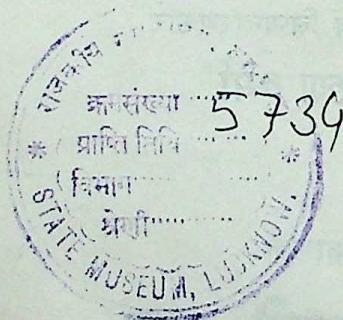 राजकीय
क्रमसंख्या 5734
प्राप्ति तिथि
विभाग
श्रेणी
STATE MUSEUM, LUCKNOW.